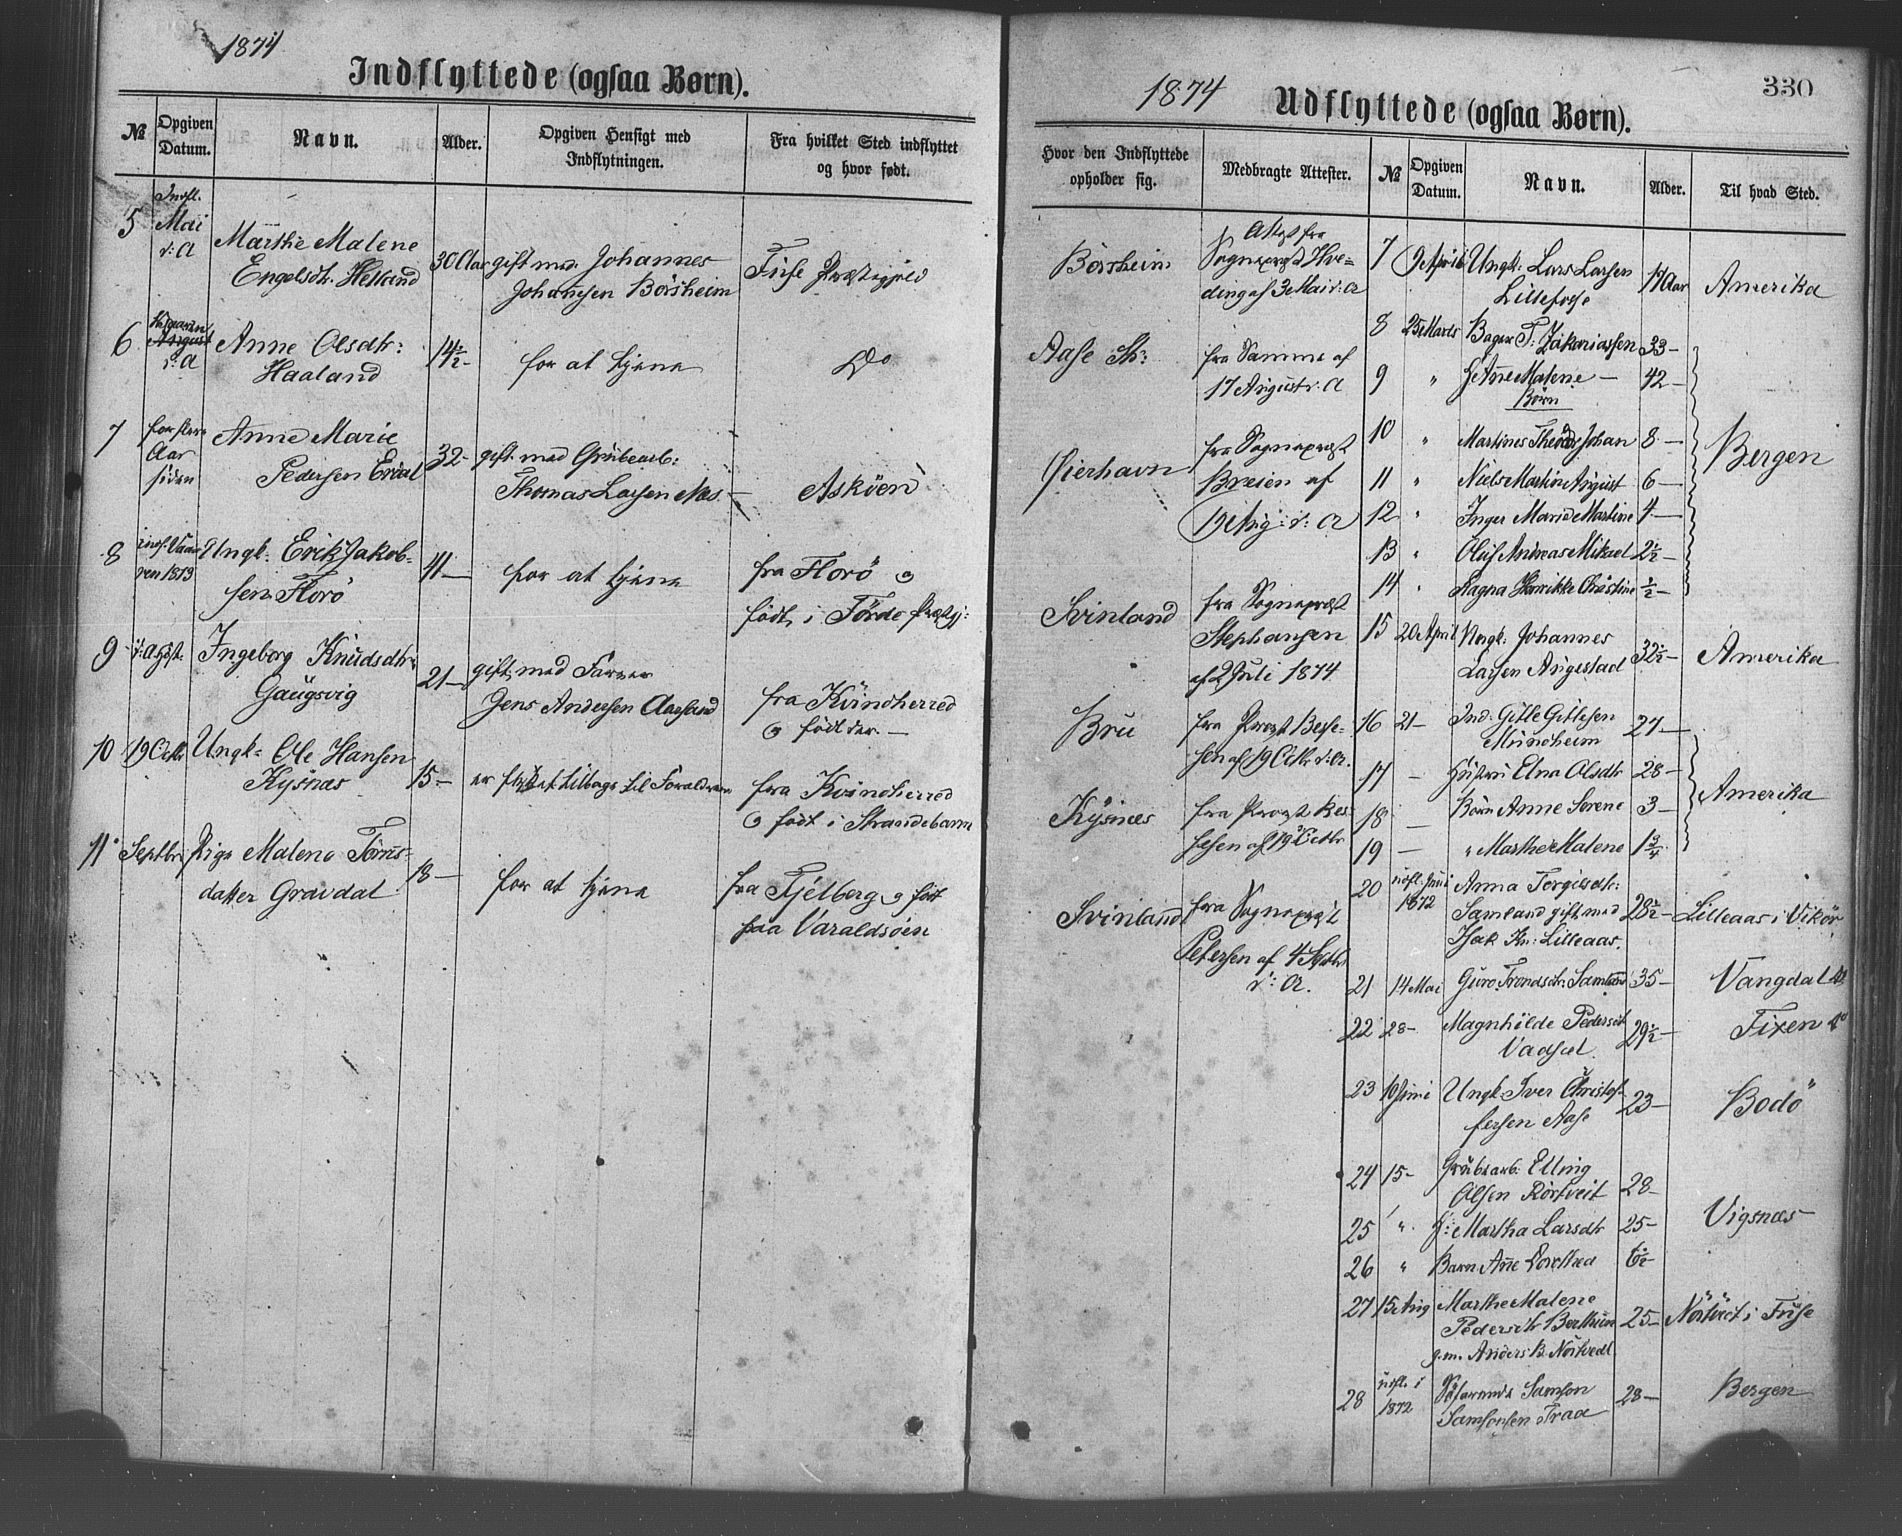 1874
Indflyttede (ogsaa Børn).
№
Opgiven Datum.
Navn.
Alder.
Opgiven Hensigt med Indflytningen.
Fra hvilket Sted indflyttet og hvor født.
5
Indfl.
Mai
d: A
Marthe Malene
Engelsdtr. Helland
30 Aar
gift med Johannes
Johannesen Börsheim
Fuse Præstegjeld
6
August
d: A
Anne Olsdtr:
Haaland
14½-
for at tjene
Do
7
for flere
Aar
siden
Anne Marie
Pedersen
32-
gift med Grubearb:
Thomas Larsen Næs
Asköen
8
indf. Vaa-
ren 1873
Ungk. Erik Jakob-
sen Florö
41-
for at tjene
fra Florö og
født i Förde Præstgj:
9
d: A Høst.
Ingeborg Knudsdtr.
Gaugsvig
21-
gift med Farver
Jens Andersen Aarsand
fra Kvindherred
og født der.
10
19 Octbr
Ungk. Ole Hansen
Kysnæs
15-
er flyttet tilbage til Forældrene
fra Kvindherred
og født i Strandebarm
11
Septbr
Pige Malene Tørris-
datter Gravdal
18-
for at tjene
fra Fjelberg og født
paa Varaldsöen
1874
Udflyttede (ogsaa Børn).
330
Hvor den Indflyttede opholder sig.
Medbragte Attester.
№
Opgiven Datum.
Navn.
Alder.
Til hvad Sted.
Börsheim
Attest fra
Sognepræst Hve-
ding af 3 Mai d: A
Aase
fra Samme af
17 August d: A
Ølerhavn
fra Sognepræst
Breien af
19 Aug: d: A
Svinland
fra Sognepræst
Stephansen
af 2 Juli 1874
Bru
fra Provst Besse-
sen af 19 Octbr d: A.
Kysnæs
fra Provst Bes-
sesen af 19 Octbr
Svinland
fra Sognepræst
Petersen af 4 Septbr
d: A.
7
9 April
Ungk: Lars Larsen
Lillefosse
17 Aar
Amerika
8
25 Marts
Bager T: Zakariassen
33-
9
"
H. Anne Malene
42-
Børn
10
"
Martines Theodor Johan
8-
Bergen
11
"
Niels Martin August
6-
12
"
Inger Marie Martine
4-
13
"
Oluf Andreas Mikael
2½
14
"
Ragna Henrikke Christine
½-
15
20 April
Ungk: Johannes
Larsen Augestad
32½-
Amerika
16
21-
Ind: Gitle Gitlesen
Mundheim
27-
17
-
Hustru Elna Olsdtr
28-
Amerika
18
-
Børn Anne Sørene
3-
19
-
" Marthe Malene
1¾
20
udfl. Juni
1872
Anna Torgilsdtr:
Samland gift med
Isak Kn: Lilleaas.
28½-
Lilleaas i Vikör
21
14 Mai
Guro Trondsdtr. Samland
35-
Vangdal do
22
28-
Magnhilde Pedersdtr
Vadsel
29½-
Fixen do
23
10 Juni
Ungk. Iver Christof-
fersen Aase
23-
Bodö
24
15-
Grubearb. Elling
Olsen Rörtveit
28-
25
"
H: Martha Larsdtr
25-
Vigsnæs
26
"
Barn Anne Dorthea
6½
27
15 Aug
Marthe Malene
Pedersdtr
g.m. Anders B. Nörtvedt
25-
Nörtveit i Fuse
28
udfl. i
1872
Samson
Samsonsen Traa
28-
Bergen